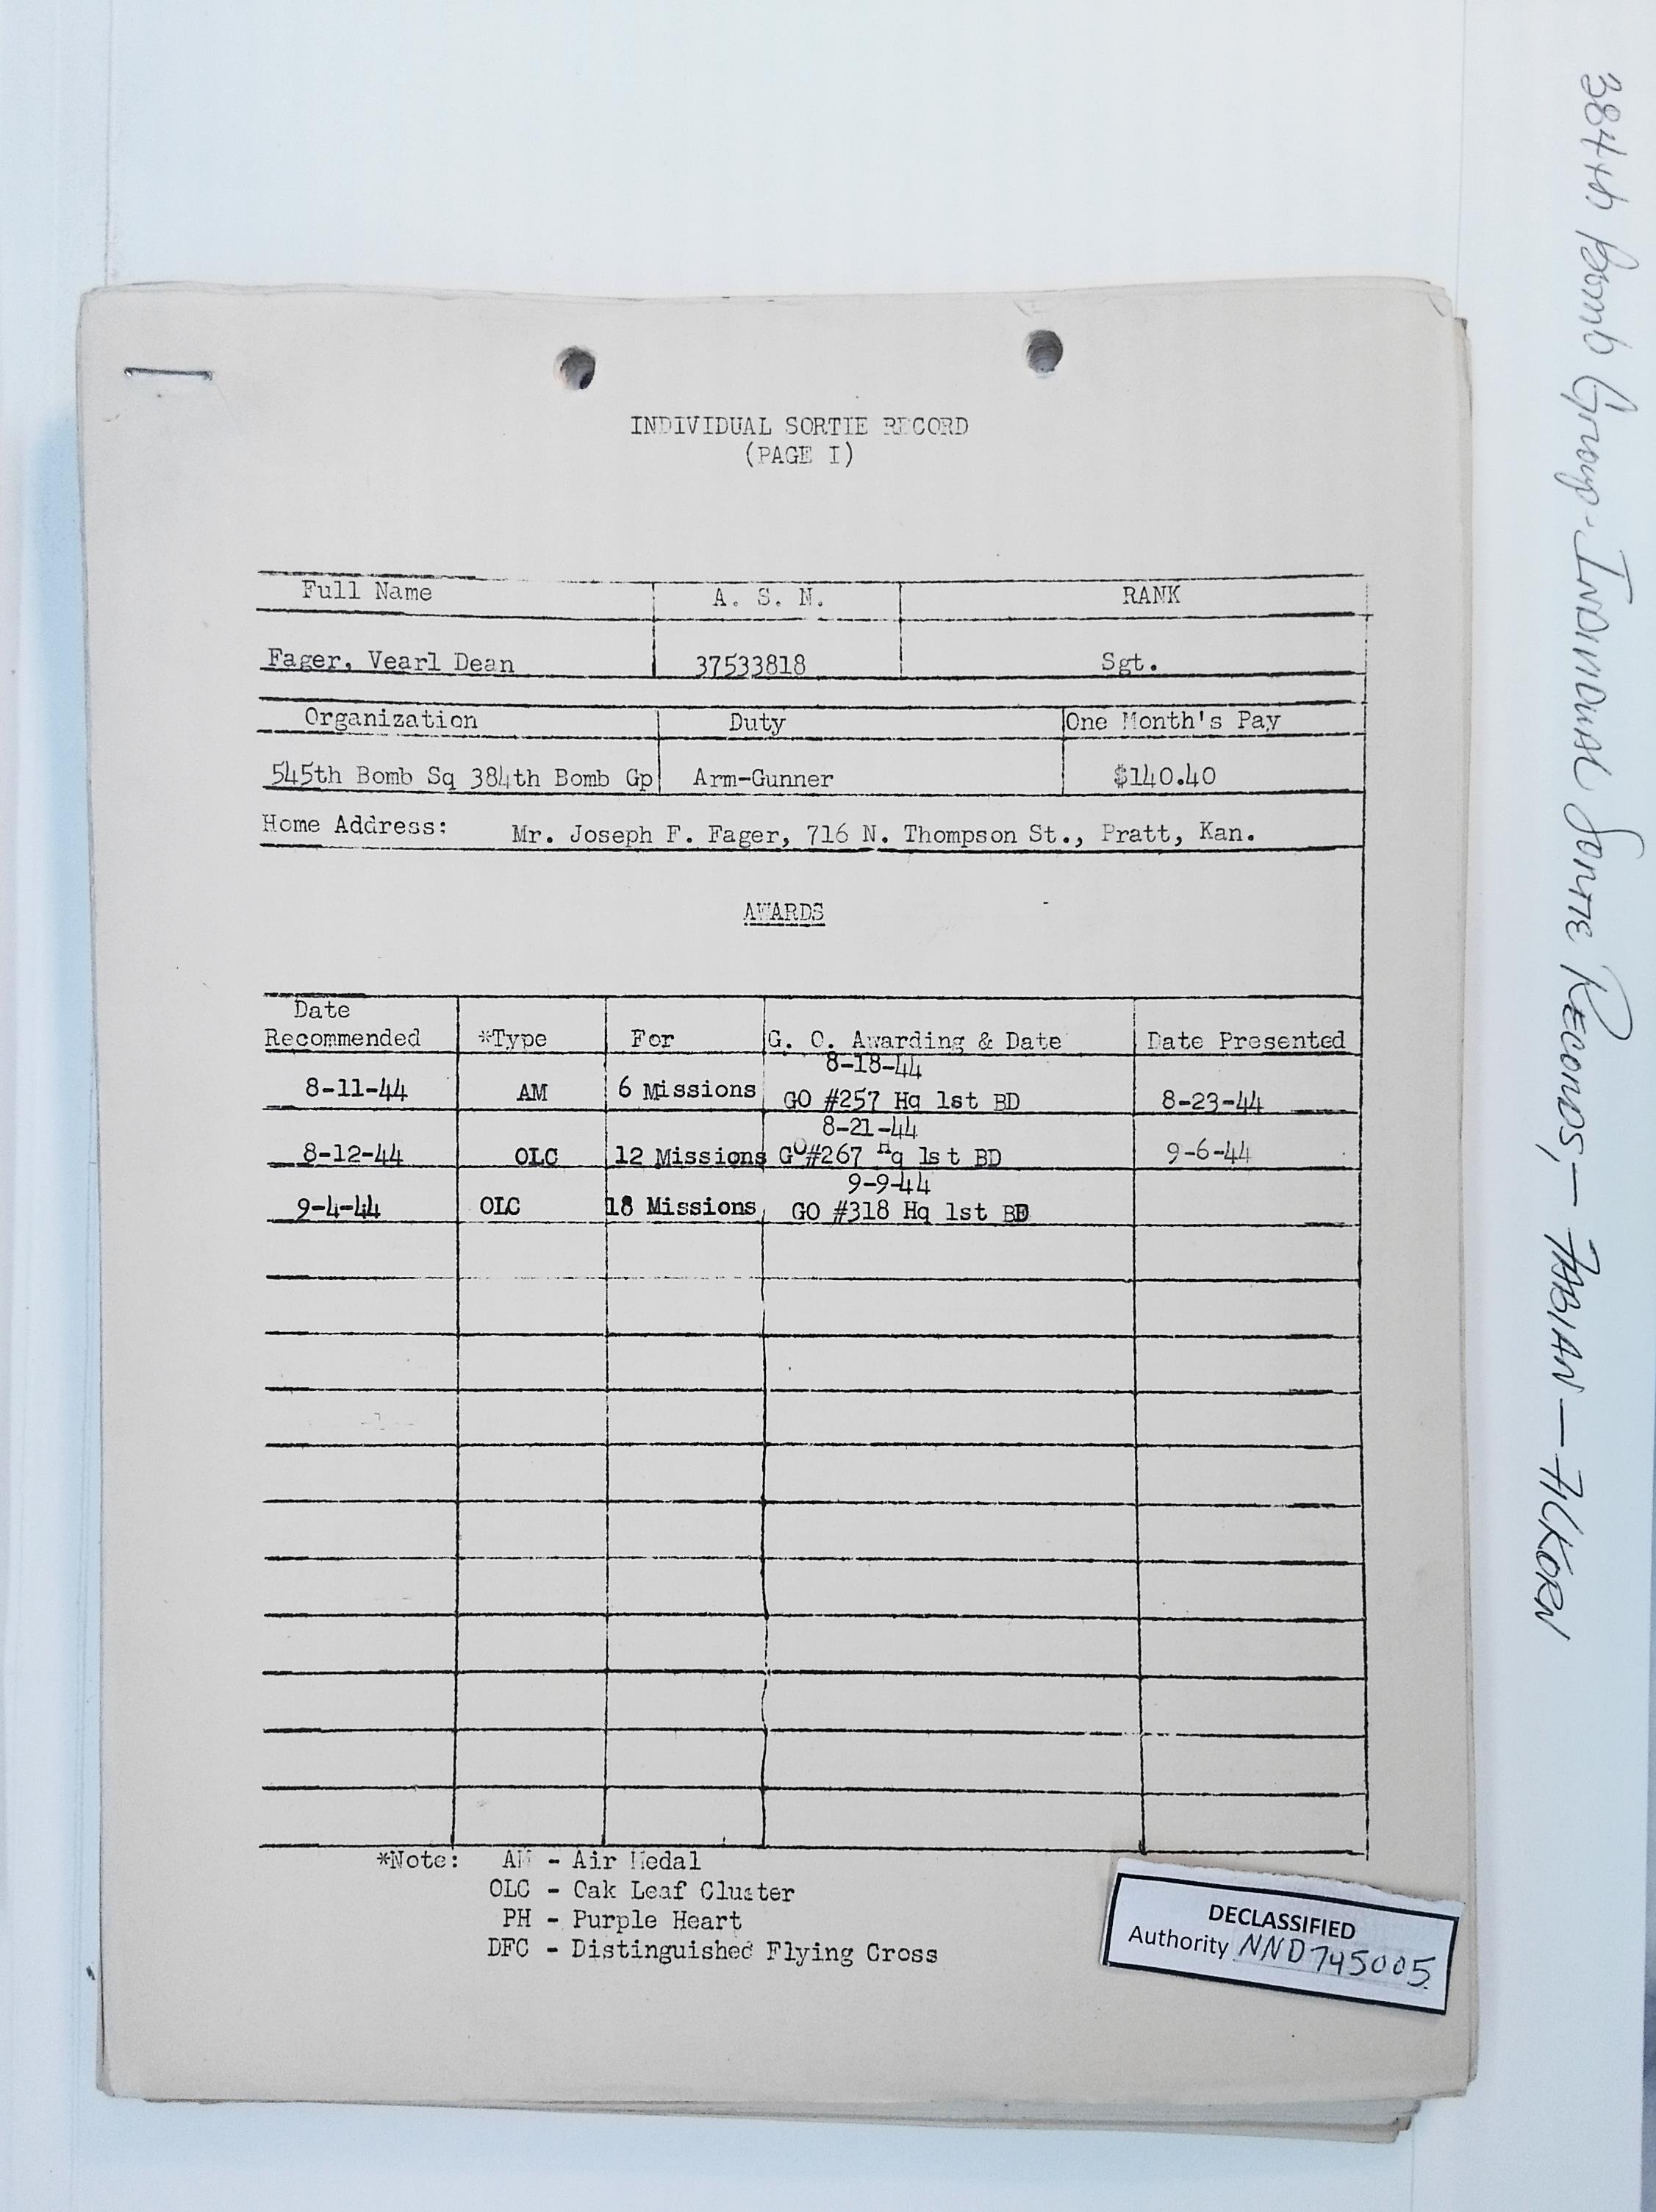 INDIVIDUAL SORTIE RECORD
(PAGE I)
Full Name A. S. N. RANK
Fager, Vearl Dean 37533818 Sgt.
Organization Duty One Month's Pay
545th Bomb Sq 384th Bomb Gp Arm-Gunner $140.40
Home Address: Mr. Joseph F. Fager, 716 N. Thompson St., Pratt, Kan.
AWARDS
Date
Recommended *Type For G. O. Awarding & Date Date Presented
8-18-44
8-11-44 AM 6 Missions GO #257 Hq 1st BD 8-23-44
8-21-44
8-12-44 OLC 12 Missions GO#267 Hq 1st BD 9-6-44
9-9-44
9-4-44 OLC 18 Missions GO #318 Hq 1st BD
*Note: AM - Air Medal
OLC - Oak Leaf Cluster
PH - Purple Heart
DFC - Distinguished Flying Cross
DECLASSIFIED
Authority NND745005
384th Bomb Group - INDIVIDUAL SORTIE RECORDS, — FABIAN — FICKORN